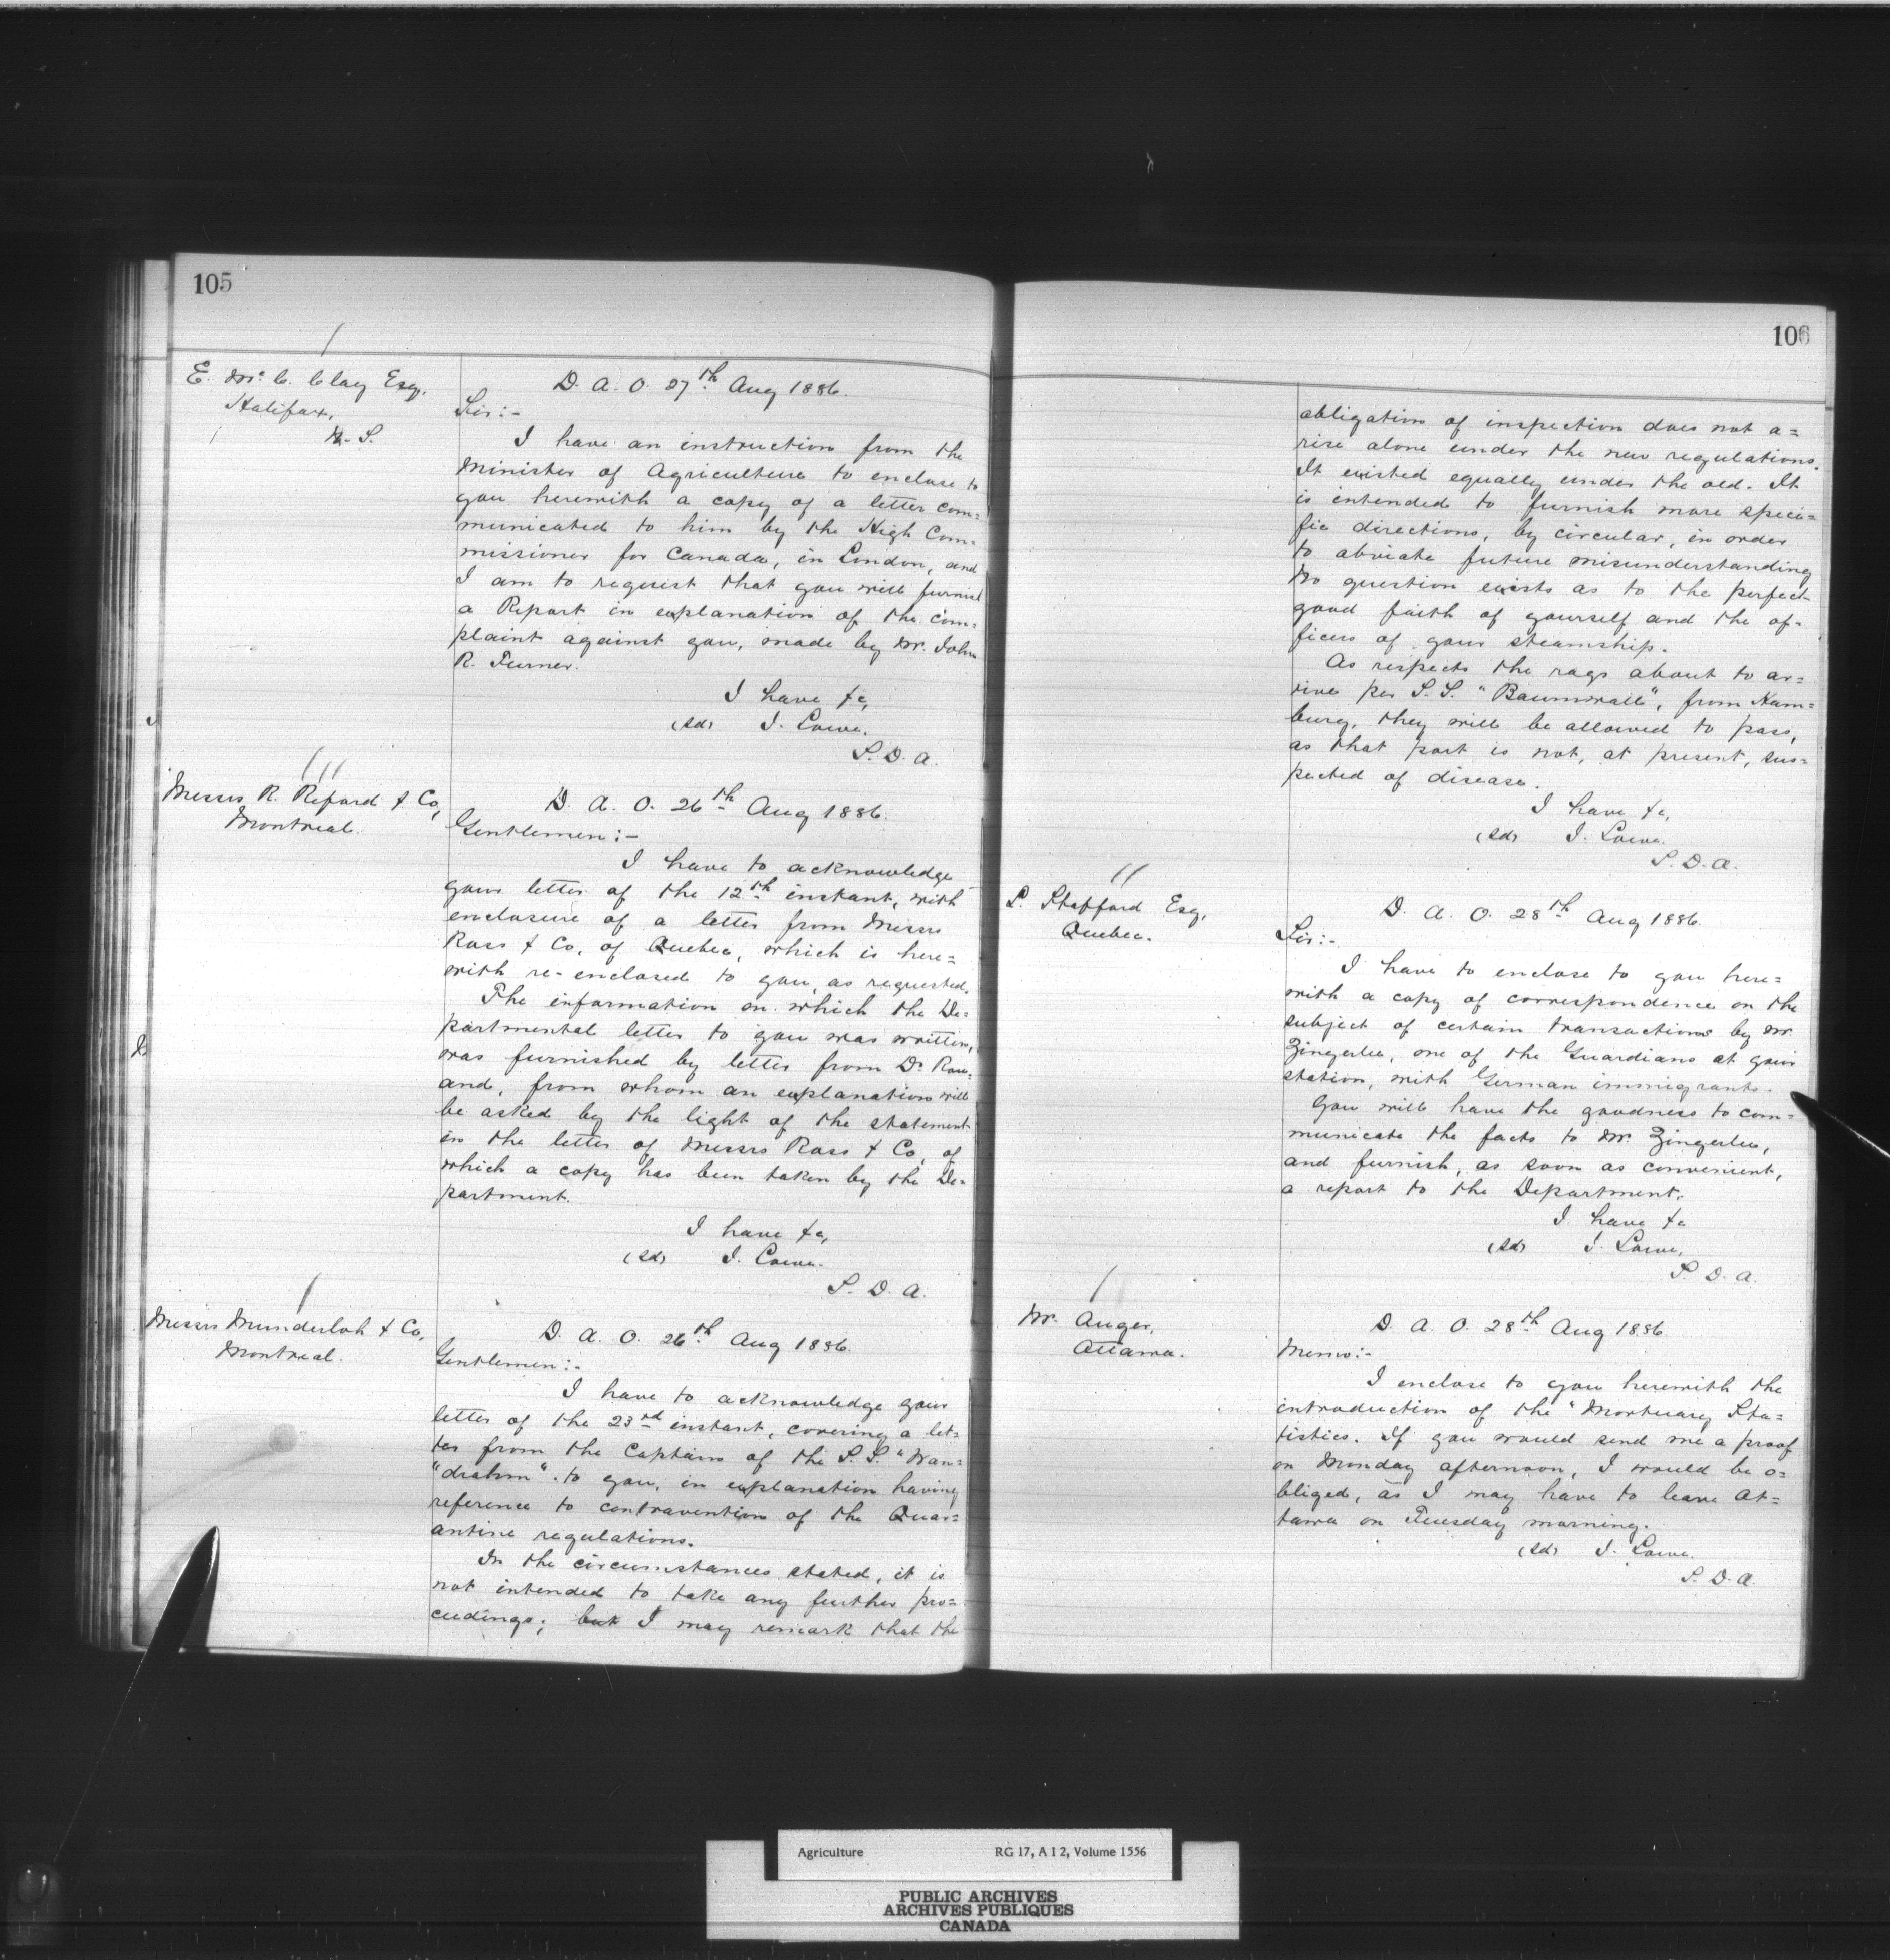 105
E. McC. Clay Esq,
Halifax,
N. S.
D. A. O. 27th Aug 1886.
Sir:-
I have an instruction from the
Minister of Agriculture to enclose to
you herewith a copy of a letter com=
municated to him by the High Com=
missioner for Canada, in London, and
I am to request that you will furnish
a Report in explanation of the com=
plaint against you, made by Mr. John
R. Turner.
I have &c,
(Sd) J. Lowe.
S. D. A.
Messrs R. Reford & Co,
Montreal.
D. A. O. 26th Aug 1886.
Gentlemen:-
I have to acknowledge
your letter of the 12th instant, with
enclosure of a letter from Messrs
Ross & Co, of Quebec, which is here=
with re-enclosed to you, as requested.
The information on which the De=
partmental letter to you was written,
was furnished by letter from Dr Row=
and, from whom an explanation will
be asked by the light of the statement
in the letter of Messrs Ross & Co, of
which a copy has been taken by the De=
partment.
I have &c,
(Sd) J. Lowe.
S. D. A.
Messrs Munderloh & Co,
Montreal.
D. A. O. 26th Aug 1886.
Gentlemen:-
I have to acknowledge your
letter of the 23rd instant, covering a let=
ter from the Captain of the S.S. "Wan=
"drahm". to you, in explanation having
reference to contravention of the Quar=
antine regulations.
In the circumstances stated, it is
not intended to take any further pro=
ceedings; but I may remark that the
106
obligation of inspection does not a=
rise alone under the new regulations.
It existed equally under the old. It
is intended to furnish more speci=
fic directions, by circular, in order
to obviate future misunderstanding
No question exists as to the perfect
good faith of yourself and the of=
ficers of your steamship.
As respects the rags about to ar=
rive per S.S. "Baumwall", from Ham=
burg, they will be allowed to pass,
as that port is not, at present, sus=
pected of disease.
I have &c,
(Sd) J. Lowe.
S. D. A.
L. Stafford Esq,
Quebec.
D. A. O. 28th Aug 1886.
Sir:-
I have to enclose to you here=
with a copy of correspondence on the
subject of certain transactions by Mr
Zingerlee, one of the Guardians at your
station, with German immigrants.
You will have the goodness to com=
municate the facts to Mr. Zingerlee,
and furnish, as soon as convenient,
a report to the Department.
I have &c
(Sd) J. Lowe,
S. D. A.
Mr. Auger,
Ottawa.
D. A. O. 28th Aug 1886.
Memo:-
I enclose to you herewith the
introduction of the "Mortuary Sta=
tistics. If you would send me a proof
on Monday afternoon, I would be o=
bliged, as I may have to leave Ot=
tawa on Tuesday morning.
(Sd) J. Lowe.
S. D. A.
Agriculture RG 17, A I 2, Volume 1556
PUBLIC ARCHIVES
ARCHIVES PUBLIQUES
CANADA